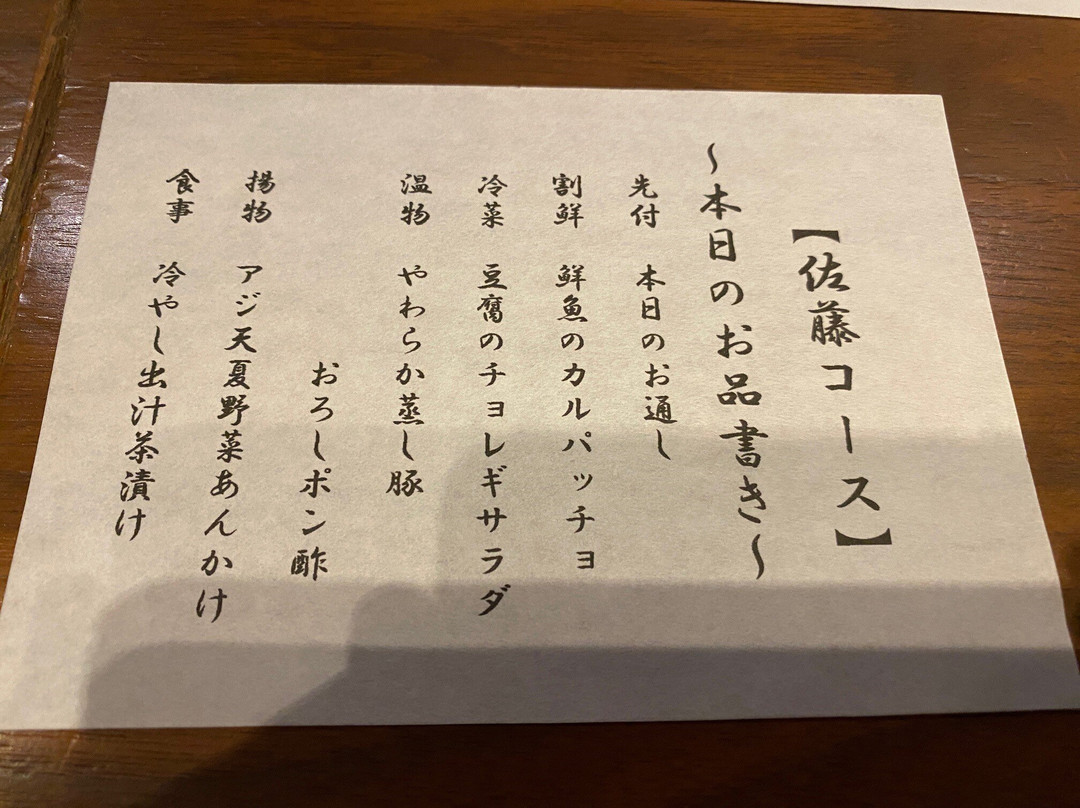 【佐藤コース】
～本日のお品書き～
先付　本日のお通し
割鮮　鮮魚のカルパッチョ
冷菜　豆腐のチョレギサラダ
温物　やわらか蒸し豚
おろしポン酢
揚物　アジ天夏野菜あんかけ
食事　冷やし出汁茶漬け